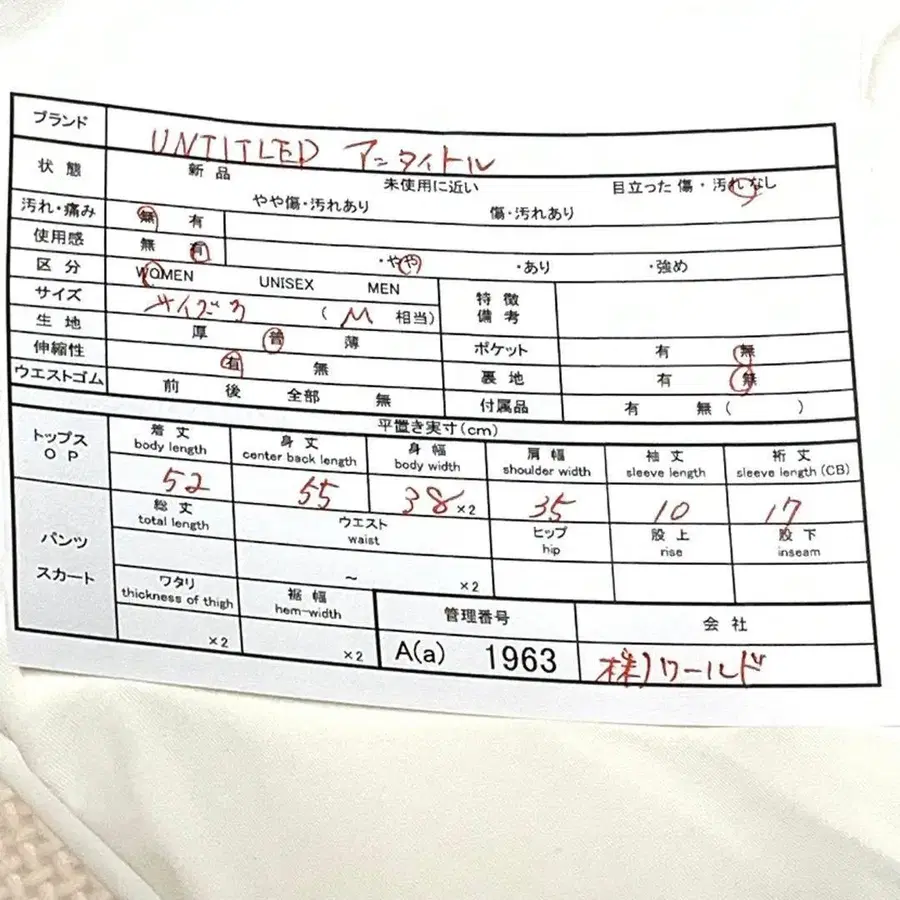 ブランド UNTITLED アンタイトル
状態 新品 未使用に近い 目立った傷・汚れなし
やや傷・汚れあり 傷・汚れあり
汚れ・痛み 無 有
使用感 無 有 ・やや ・あり ・強め
区分 WOMEN UNISEX MEN 特徴備考
サイズ サイズ (M 相当)
生地 厚 普 薄 ポケット 有 無
伸縮性 有 無 裏地 有 無
ウエストゴム 前 後 全部 無 付属品 有 無( )
平置き実寸(cm)
トップス OP 着丈 身丈 身幅 肩幅 袖丈 裄丈
body length center back length body width shoulder width sleeve length sleeve length(CB)
52 55 38×2 35 10 17
パンツ スカート 総丈 ウエスト ヒップ 股上 股下
total length waist hip rise inseam
~ ×2
ワタリ 裾幅 管理番号 会社
thickness of thigh hem-width
×2 ×2 A(a) 1963 株)ワールド